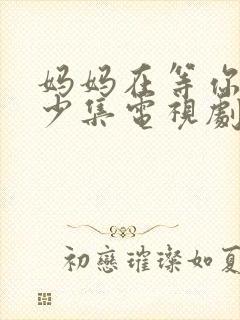 妈妈在等你
少集電視劇
初戀璀璨如夏